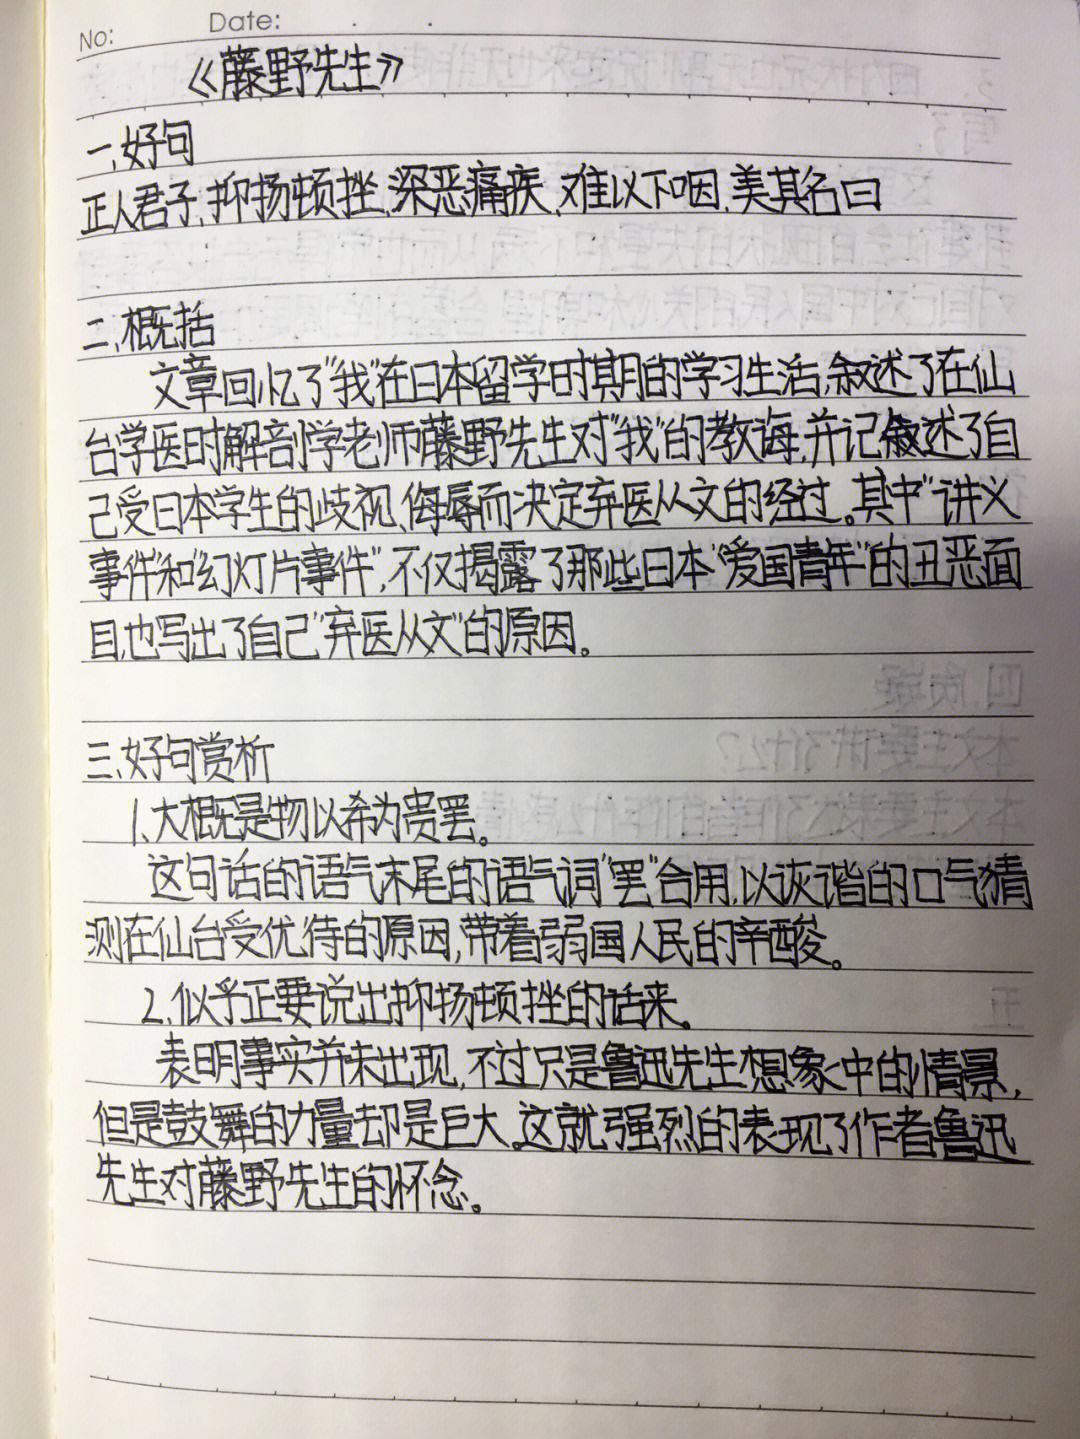 No:
Date:
《藤野先生》
一、好句
正人君子、抑扬顿挫、深恶痛疾、难以下咽、美其名曰
二、概括
文章回忆了“我”在日本留学时期的学习生活,叙述了在仙
台学医时解剖学老师藤野先生对“我”的教诲,并记叙述了自
己受日本学生的歧视、侮辱而决定弃医从文的经过。其中“讲义
事件”和“幻灯片事件”,不仅揭露了那些日本“爱国青年”的丑恶面
目,也写出了自己“弃医从文”的原因。
三、好句赏析
1、大概是物以希为贵罢。
这句话的语气末尾的语气词“罢”合用,以诙谐的口气猜
测在仙台受优待的原因,带着弱国人民的辛酸。
2、似乎正要说出抑扬顿挫的话来。
表明事实并未出现,不过只是鲁迅先生想象中的情景,
但是鼓舞的力量却是巨大。这就强烈的表现了作者鲁迅
先生对藤野先生的怀念。